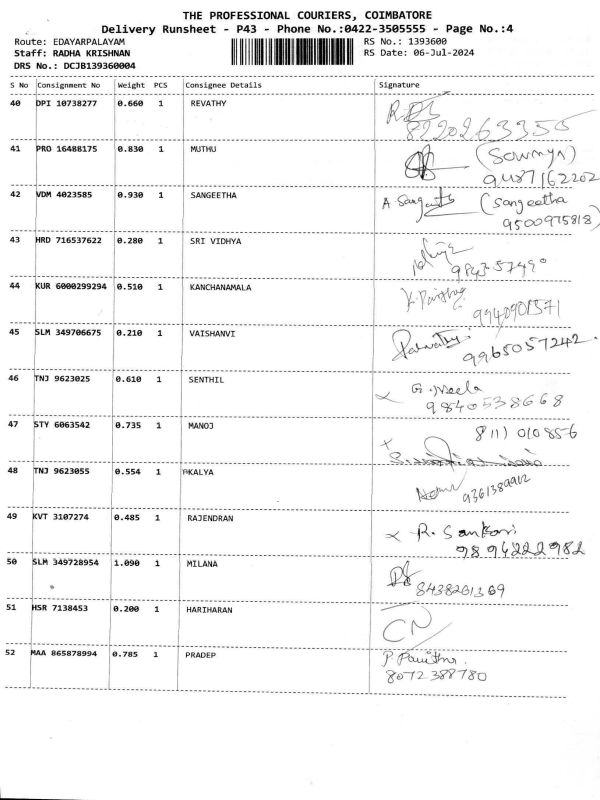 THE PROFESSIONAL COURIERS, COIMBATORE
Delivery Runsheet - P43 - Phone No.:0422-3505555 - Page No.:4
Route: EDAYARPALAYAM RS No.: 1393600
Staff: RADHA KRISHNAN RS Date: 06-Jul-2024
DRS No.: DCJB139360004
S No Consignment No Weight PCS Consignee Details Signature
40 DPI 10738277 0.660 1 REVATHY
8220263355
41 PRO 16488175 0.830 1 MUTHU (Sowmya)
9487162202
42 VDM 4023585 0.930 1 SANGEETHA A. Sangeetha (Sangeetha
9500975818)
43 HRD 716537622 0.280 1 SRI VIDHYA
44 KUR 6000299294 0.510 1 KANCHANAMALA
9940901571
45 SLM 349706675 0.210 1 VAISHANVI Parvathy
9965057242.
46 TNJ 9623025 0.610 1 SENTHIL G. Neela
9840538668
47 STY 6063542 0.735 1 MANOJ 8111 010856
48 TNJ 9623055 0.554 1 KALYA
9361389902
49 KVT 3107274 0.485 1 RAJENDRAN R. Sankari
9894222982
50 SLM 349728954 1.090 1 MILANA
8438261369
51 HSR 7138453 0.200 1 HARIHARAN
52 MAA 865878994 0.785 1 PRADEP P. Pavithra
8072388780